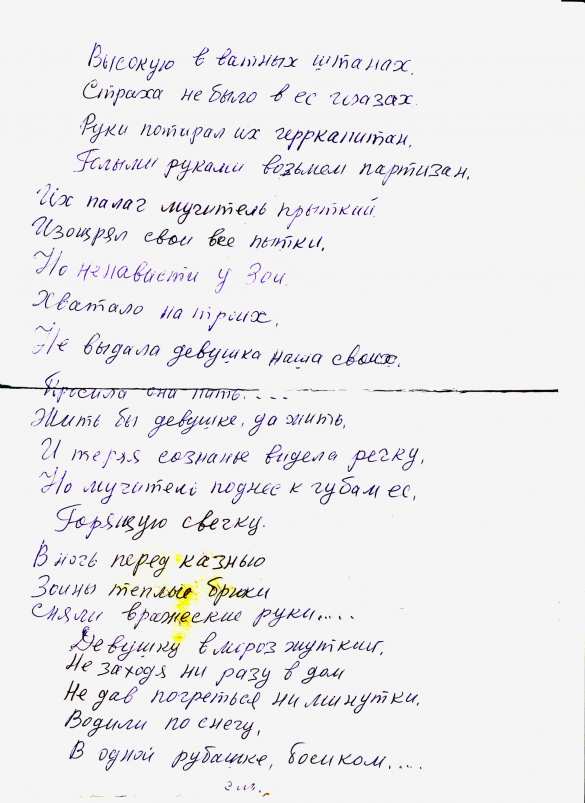 Высокую в ватных штанах.
Страха не было в ес глазах.
Руки потирал их герркапитан,
Голыми руками возьмем партизан.
Их палач мучитель прыткий
Изощрял свои все пытки,
Но ненависти у Зои
Хватало на троих,
Не выдала девушка наша своих.
Просила она пить....
Жить бы девушке, да жить,
И теряя сознанье видела речку,
Но мучитель поднес к губам ес,
Горящую свечку.
В ночь перед казнью
Зоины теплые брюки
Сняли вражеские руки....
Девушку в мороз жуткий,
Не заходя ни разу в дом
Не дав погреться ни минутки.
Водили по снегу,
В одной рубашке, босиком....